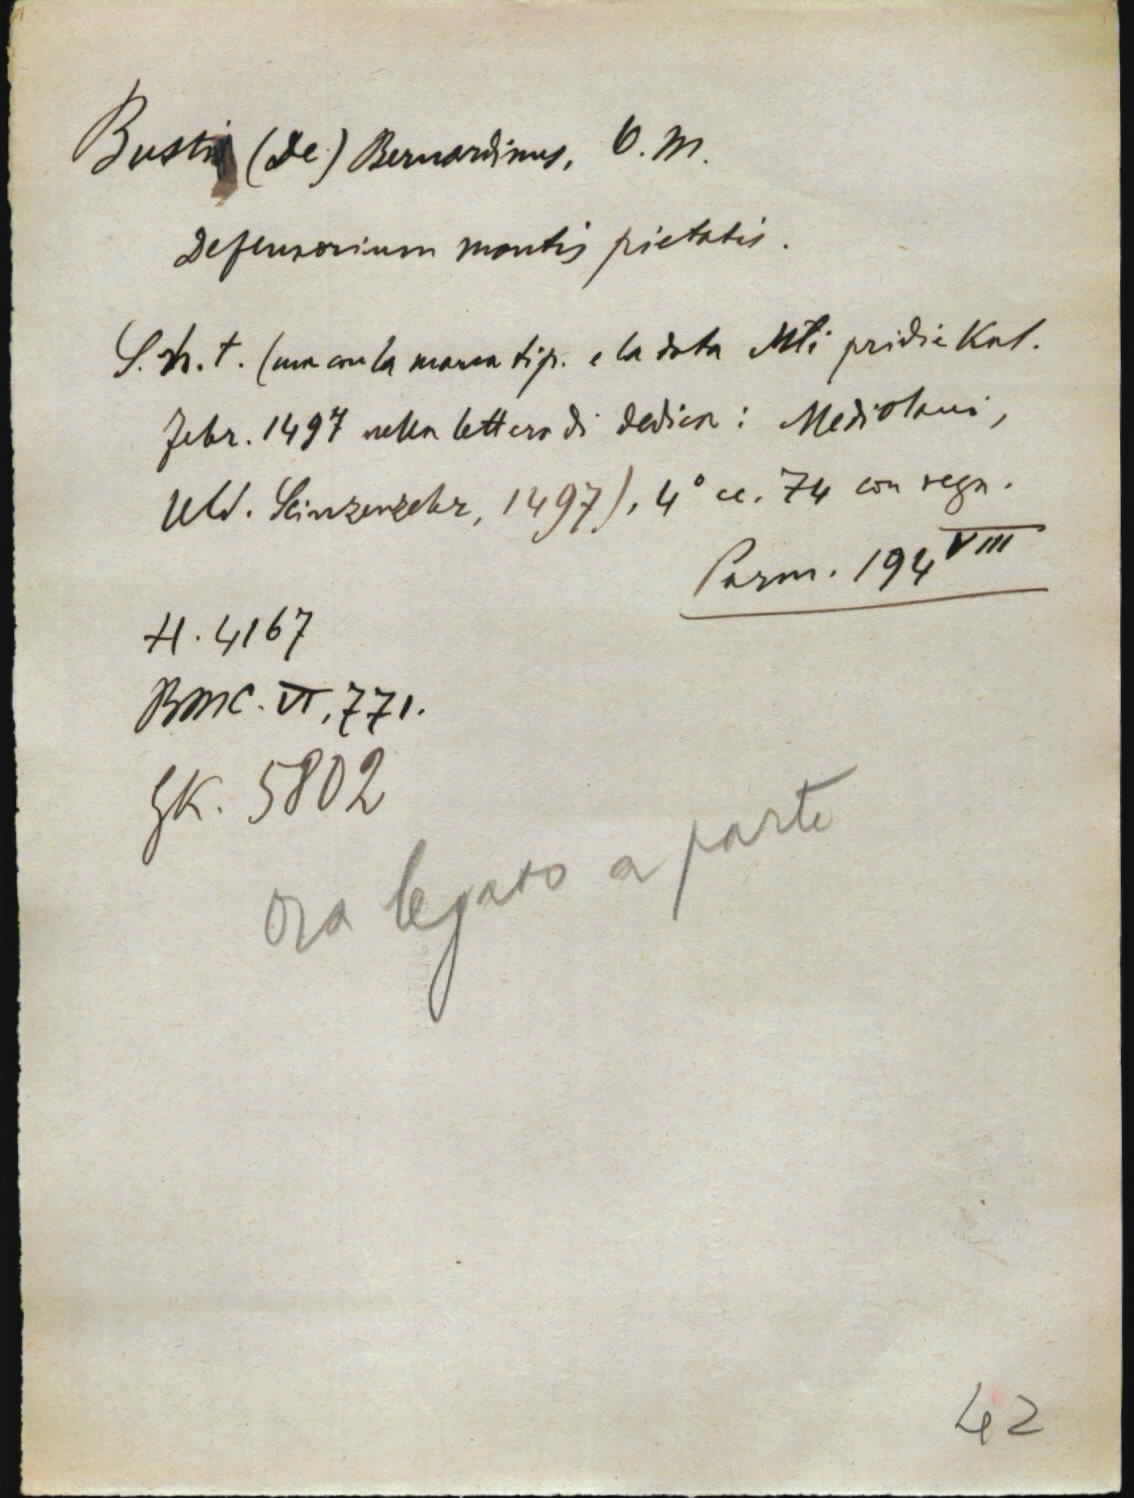 Busti (De) Bernardinus, O. M.
Defensorium montis pietatis.
S. n. t. (ma con la marca tip. e la data Mli pridie Kal.
Febr. 1497 nella lettera di dedica: Mediolani,
Uld. Scinzenzeler, 1497), 4° cc. 74 con segn.
Parm. 194 VIII
H. 4167
BMC. VI, 771.
GK. 5802
ora legato a parte
42